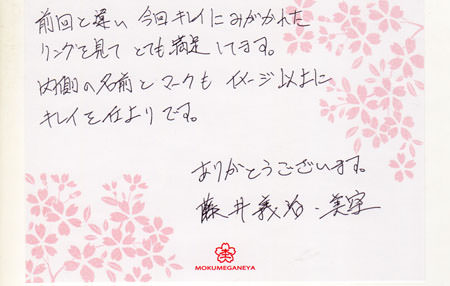 前回と違い 今回キレイにみがかれた
リングを見て とても満足してます。
内側の名前とマークも イメージ以上に
キレイな仕上りです。
ありがとうございます。
藤井義治・美宇
MOKUMEGANEYA